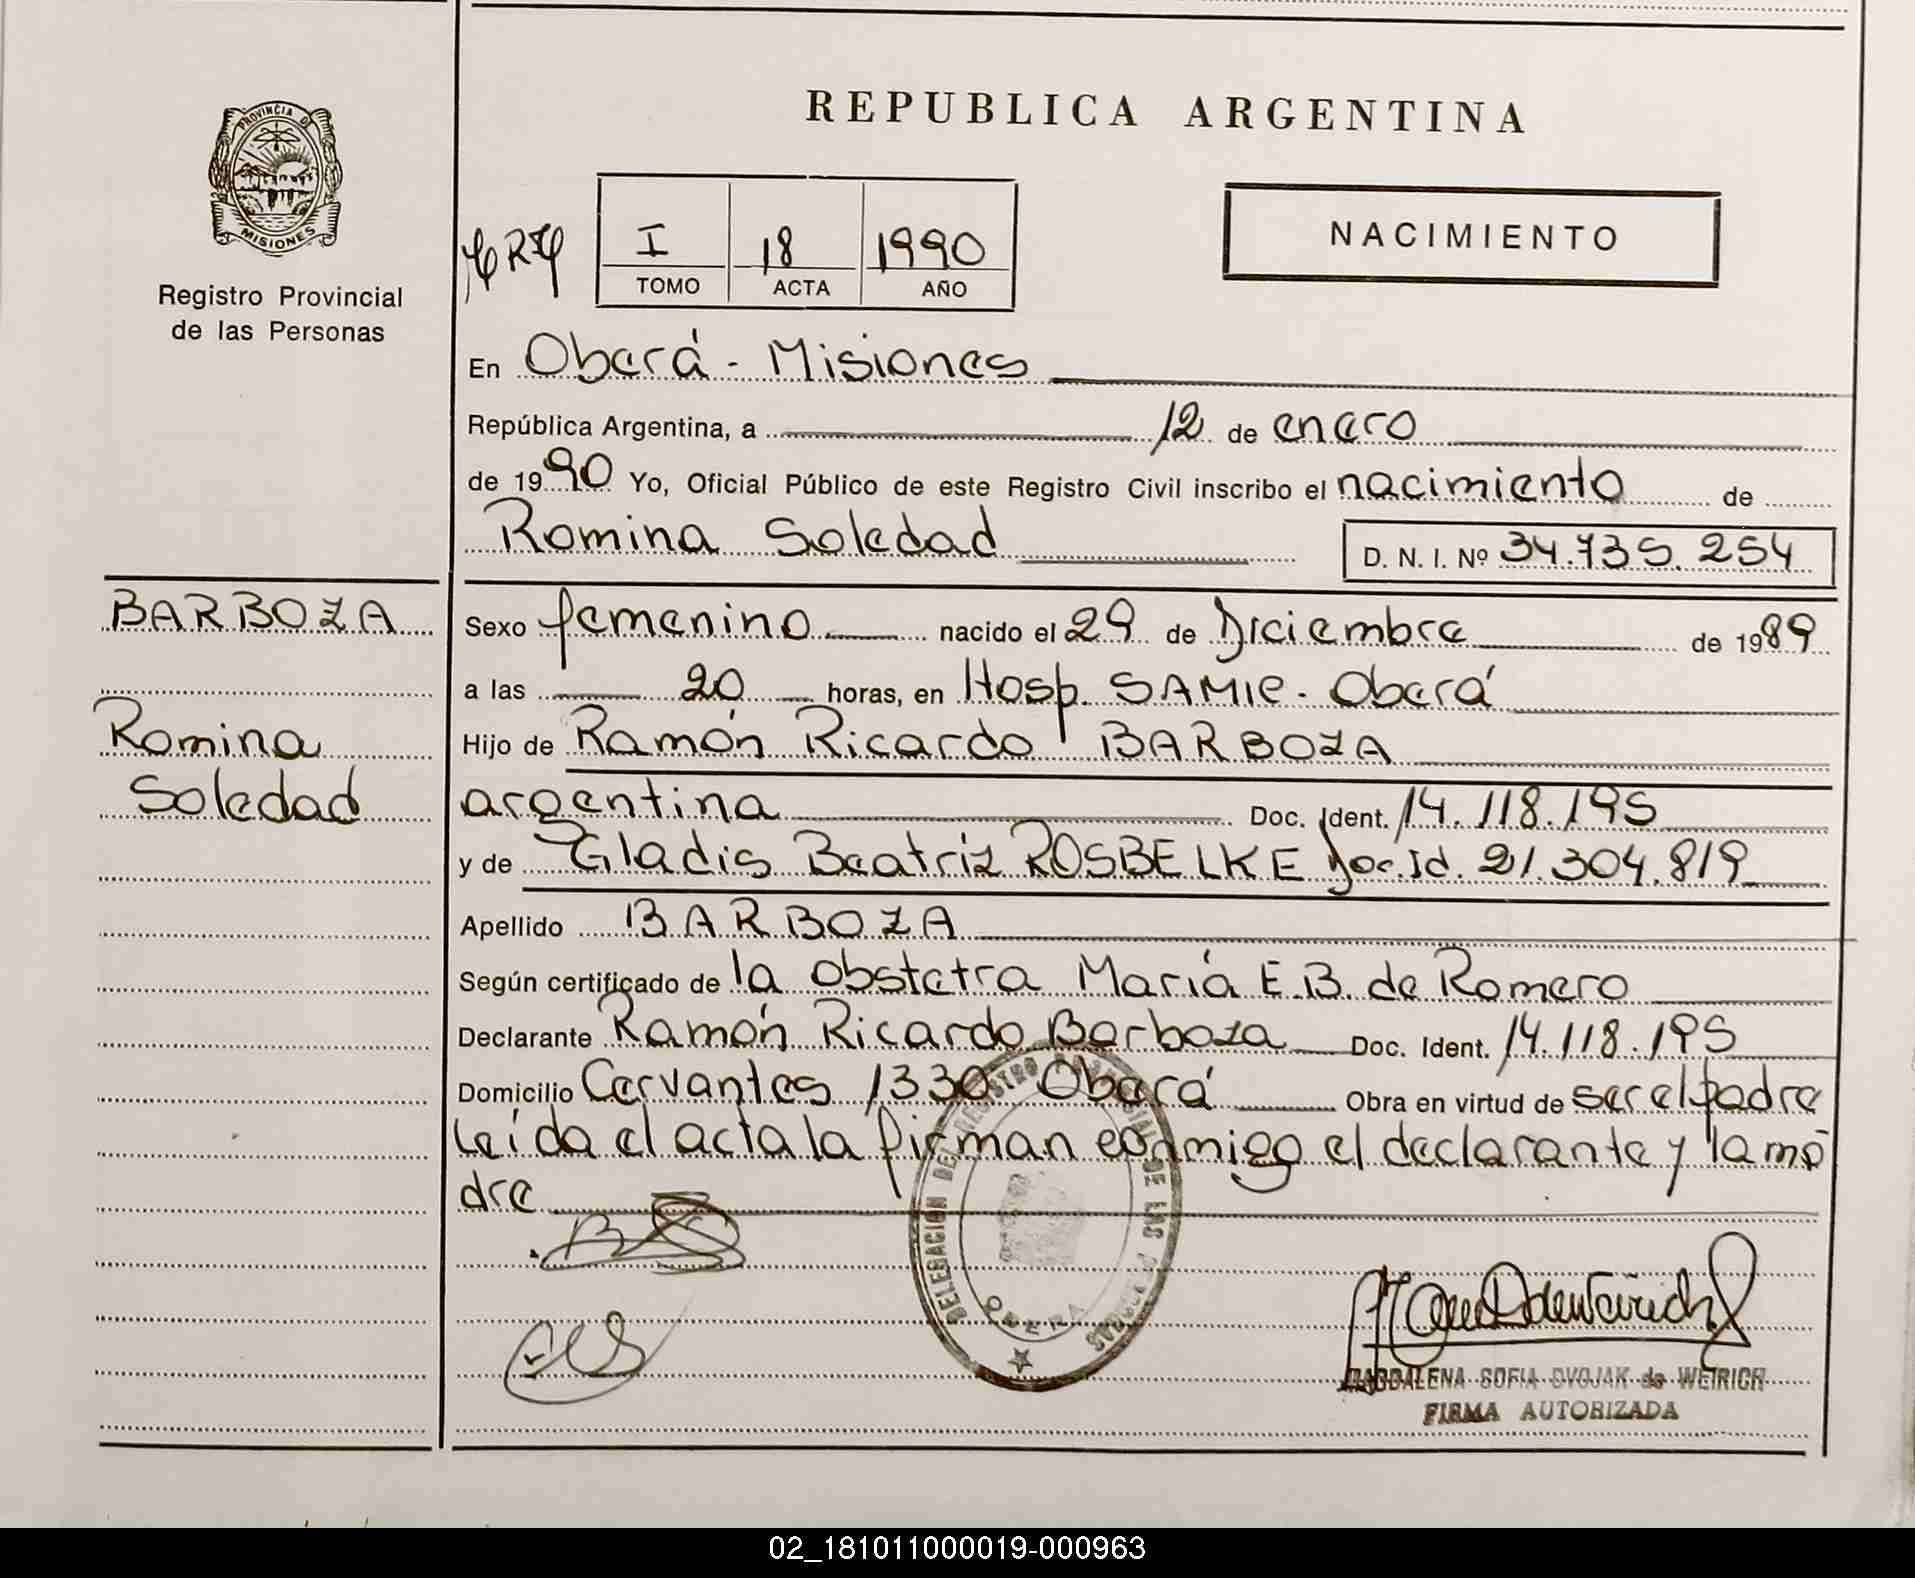 REPUBLICA ARGENTINA
PROVINCIA DE
MISIONES
Registro Provincial
de las Personas
I 18 1990
TOMO ACTA AÑO
NACIMIENTO
En Oberá - Misiones
República Argentina, a 12 de enero
de 1990 Yo, Oficial Público de este Registro Civil inscribo el nacimiento de
Romina Soledad D. N. I. Nº 34.735.254
BARBOZA
Romina
Soledad
Sexo femenino nacido el 29 de Diciembre de 1989
a las 20 horas, en Hosp. SAMIC. Oberá
Hijo de Ramón Ricardo BARBOZA
argentina Doc. Ident. 14.118.195
y de Gladis Beatriz ROSBELKE Doc. Id. 21.304.819
Apellido BARBOZA
Según certificado de la obstetra María E.B. de Romero
Declarante Ramón Ricardo Barboza Doc. Ident. 14.118.195
Domicilio Cervantes 1330 Oberá Obra en virtud de ser el padre
Leída el acta la firman conmigo el declarante y la ma
dre
DELEGACION DEL REGISTRO PROVINCIAL DE LAS PERSONAS
OBERA
MAGDALENA SOFIA DVOJAK de WEIRICH
FIRMA AUTORIZADA
02_181011000019-000963